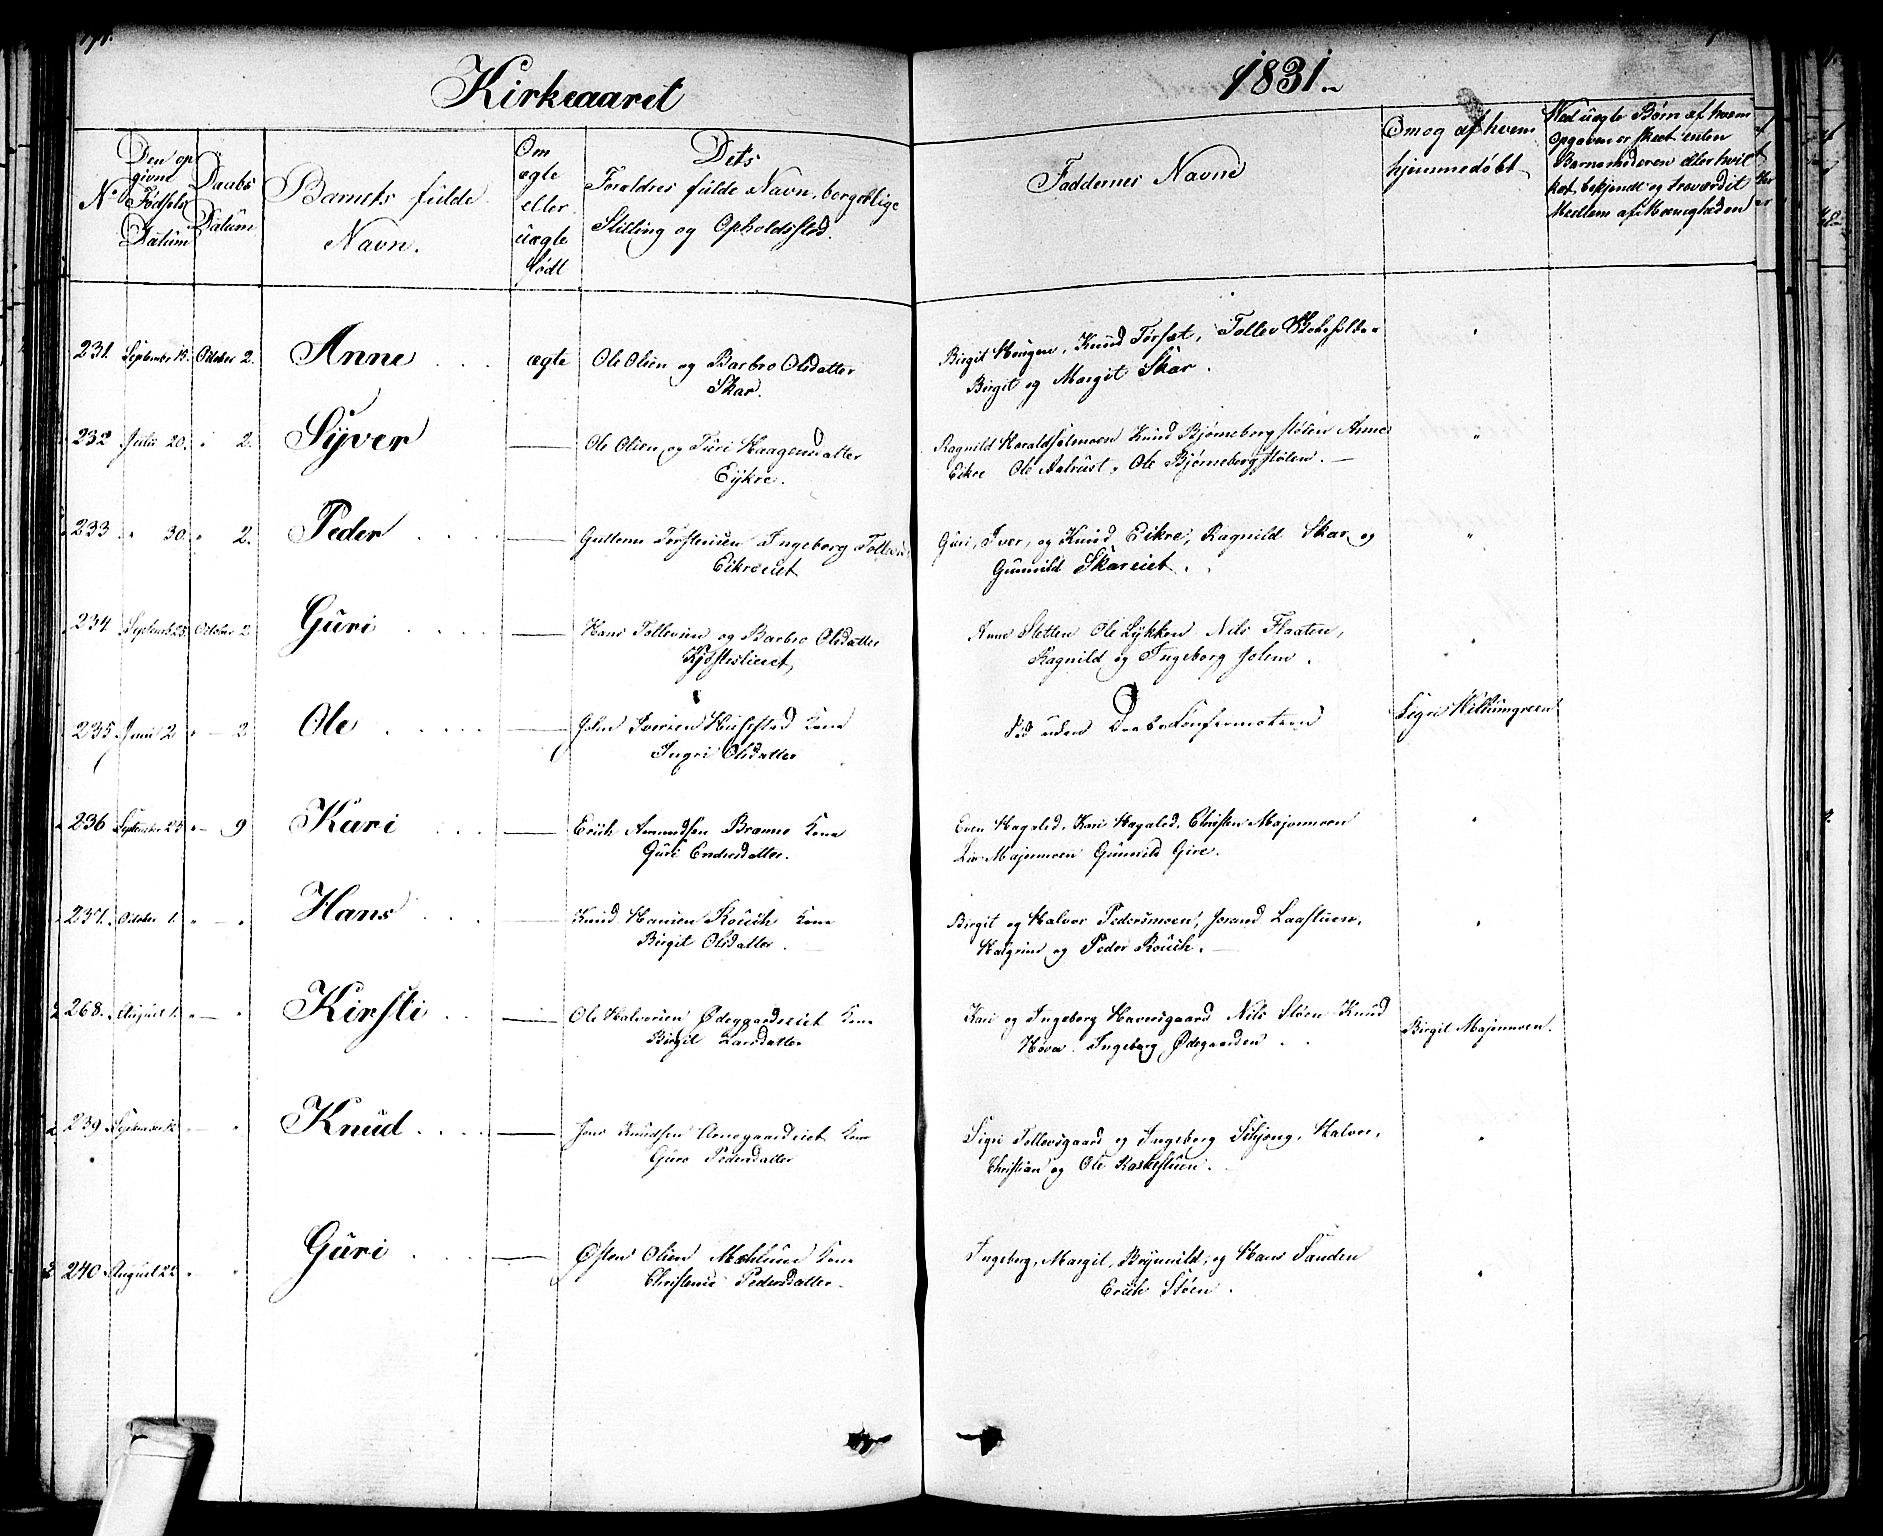 Kirkeaaret
1831.
No
Den op
givne
Fødsels
Datum
Daabs
Datum
Barnets fulde
Navn.
Om
ægte
eller
uægte
født
Dets
Foraldres fulde Navn, borgerlige
Stilling og Opholdssted.
Faddernes Navne
Om og af hvem
hjemmedøbt
Ved uægte Børn af hvem
Opgaven er skeet enten
Barnemoderen eller hvil
ket bekjendt og troværdit
Medlem af Menigheden
231. September 15. October 2. Anne ægte Ole Olsen og Barbro Olsdatter
Skar.
Birgit Haugen, Knud Torset, Tollev
Birgit og Margit Skar.
232 Julii 20. " 2. Syver — Ole Olsen og Turi Haagensdatter
Eijkre.
Ragnild Haraldsetmoen Knud Bjørnebergstølen Anne
Eikre Ole Aalrust, Ole Bjørnebergstølen. —
233 " 30. " 2. Peder — Guttorm Torstensen Ingeborg
Eikreeiet
Guri, Iver, og Knud Eikre, Ragnild Skar og
Gunnild Skareiet.
234 Septemb 25. October 2 Guri — Hans Tollevsen og Barbro Olsdatter
Anne Sletten Ole Lykken Nils Flaaten,
Ragnild og Ingeborg Jolem.
235 Junii 2 " — 2 Ole — John Iversen Huseflad Kone
Ingri Olsdatter
Død uden Daabsconfirmation
Sigri
236 September 25 " — 9 Kari — Erich Amundsen Brenno Kone
Guri Endresdatter.
Even Hagaled, Kari Hagaled, Christen Majormoen
Liv Majormoen Gunnild Give.
237. October 1. " — " Hans — Knud Hansen Rouih Kone
Birgit Olsdatter. —
Birgit og Halvor Pedersmoen, Jorand Laastuen,
Halgrim og Peder Rouih. —
268. August 1. " — " Kirsti — Ole Halvorsen Ødegaardseiet Kone
Birgit Larsdatter
Kari og Ingeborg Haversgaard Nils Støen Knud
Hove Ingeborg Ødegaarden
Birgit Majormoen.
239 September 12 — " Knud — Jens Knudsen Arnegaardeiet Kone
Guro Pedersdatter
Sigri Tollevsgaard og Ingeborg Schjong, Halvor,
Christian og Ole Kaskestuen.
240 August 22 " " Guri — Østen Olsen Mehlum Kone
Christence Pedersdatter.
Ingeborg, Margit, Brynnild, og Hans Sanden
Erich Støen.